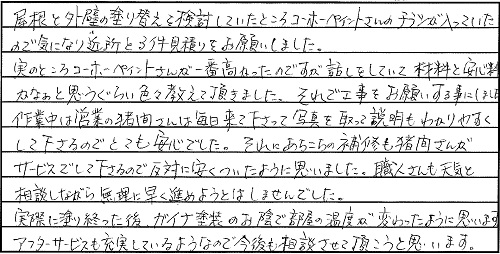 屋根と外壁の塗り替えを検討していたところコーホーペイントさんのチラシが入っていた
ので気になり近所と3件見積りをお願いしました。
実のところコーホーペイントさんが一番高かったのですが話しをしていて材料と安心料
かなぁと思うぐらい色々教えて頂きました。それで工事をお願いする事にしました
作業中は営業の猪間さんは毎日来て下さって写真を取って説明もわかりやすく
して下さるのでとても安心でした。それにあちこちの補修も猪間さんが
サービスでして下さるので反対に安くついたように思いました。職人さんも天気と
相談しながら無理に早く進めようとはしませんでした。
実際に塗り終った後、ガイナ塗装のお陰で部屋の温度が変わったように思います
アフターサービスも充実しているようなので今後も相談させて頂こうと思います。